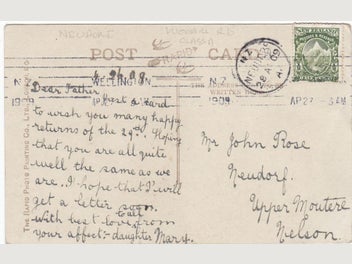 NEUDORF
MISSION RD
CLASS A
RARITY
POST CARD
WELLINGTON N.Z
1909 1909 AP 27 - 3 AM
N.Z
NEUDORF
28 AP 09
A
NEW ZEALAND
THE ADDRESS
WRITTEN
Dear Father,
Just a card
to wish you many happy
returns of the 29th. Hoping
that you are all quite
well the same as we
are. I hope that I will
get a letter soon.
With best love from
your affect:- daughter Mary.
Mr John Rose
Neudorf.
Upper Moutere
Nelson.
THE RAPID PHOTO PRINTING CO., LTD.